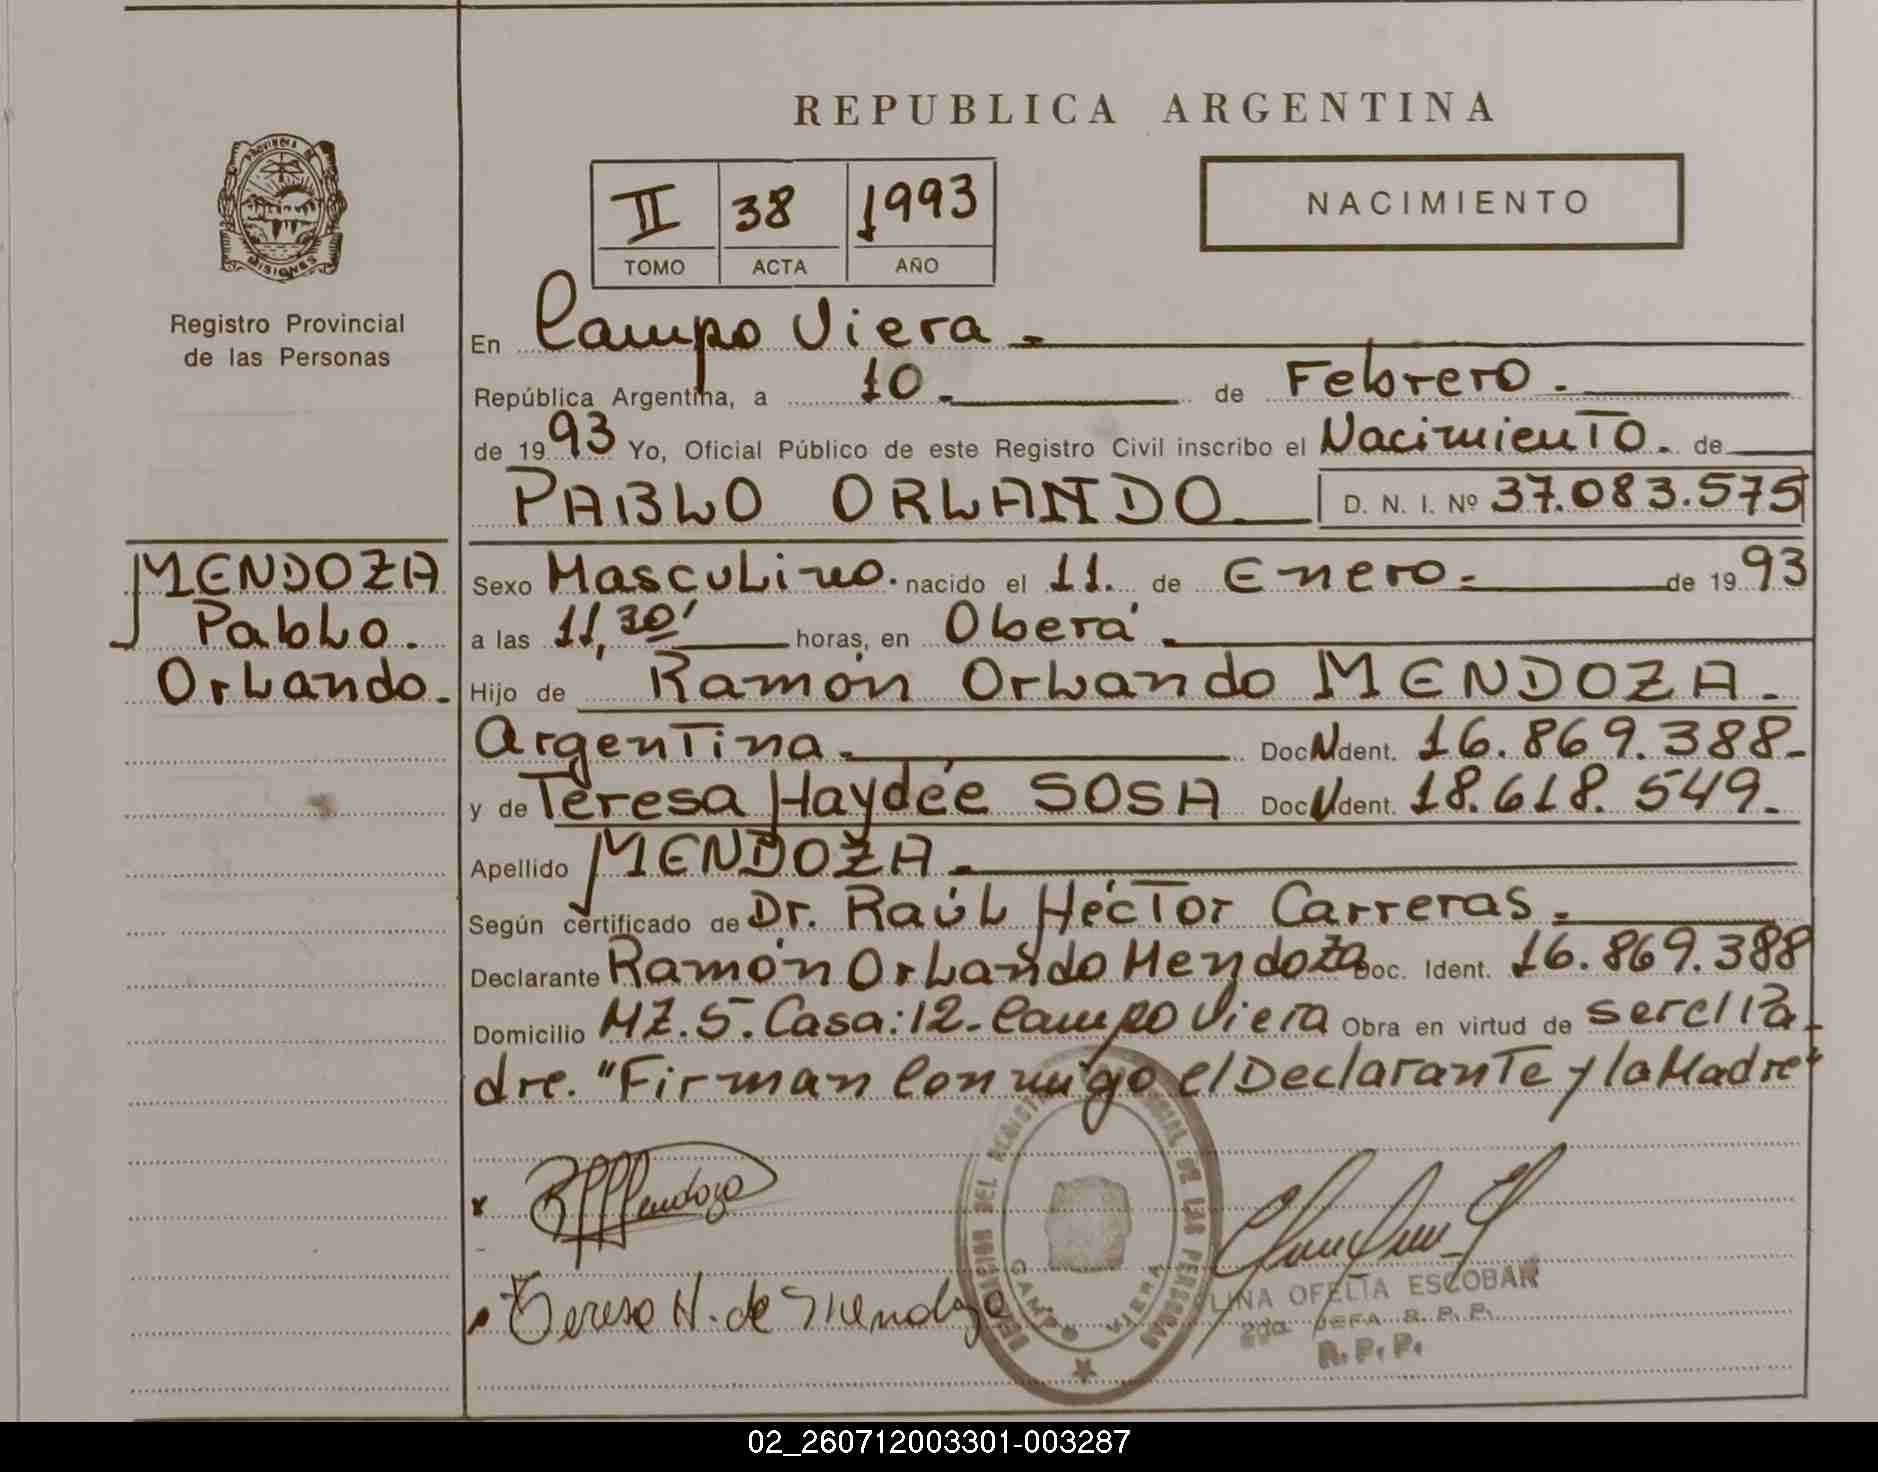 REPUBLICA ARGENTINA
PROVINCIA DE
MISIONES
Registro Provincial
de las Personas
II 38 1993
TOMO ACTA AÑO
NACIMIENTO
En Campo Viera.-
República Argentina, a 10.- de Febrero.-
de 1993 Yo, Oficial Público de este Registro Civil inscribo el Nacimiento. de
PABLO ORLANDO D. N. I. Nº 37.083.575
MENDOZA
Pablo.
Orlando.-
Sexo Masculino. nacido el 11. de Enero.- de 1993
a las 11,30' horas, en Oberá.-
Hijo de Ramón Orlando MENDOZA.-
Argentina.- Doc. Ident. 16.869.388.-
y de Teresa Haydée SOSA Doc. Ident. 18.618.549.-
Apellido MENDOZA.-
Según certificado de Dr. Raúl Héctor Carreras.-
Declarante Ramón Orlando Mendoza Doc. Ident. 16.869.388
Domicilio MZ. 5. Casa: 12.- Campo Viera Obra en virtud de ser el Pa-
dre. "Firman Conmigo el Declarante y la Madre"
Mendoza
Teresa H. de Mendoza
DEL REGISTRO PROVINCIAL DE LAS PERSONAS
CAMPO VIERA
LINA OFELIA ESCOBAR
2da JEFA R. P. P.
R. P. P.
02_260712003301-003287